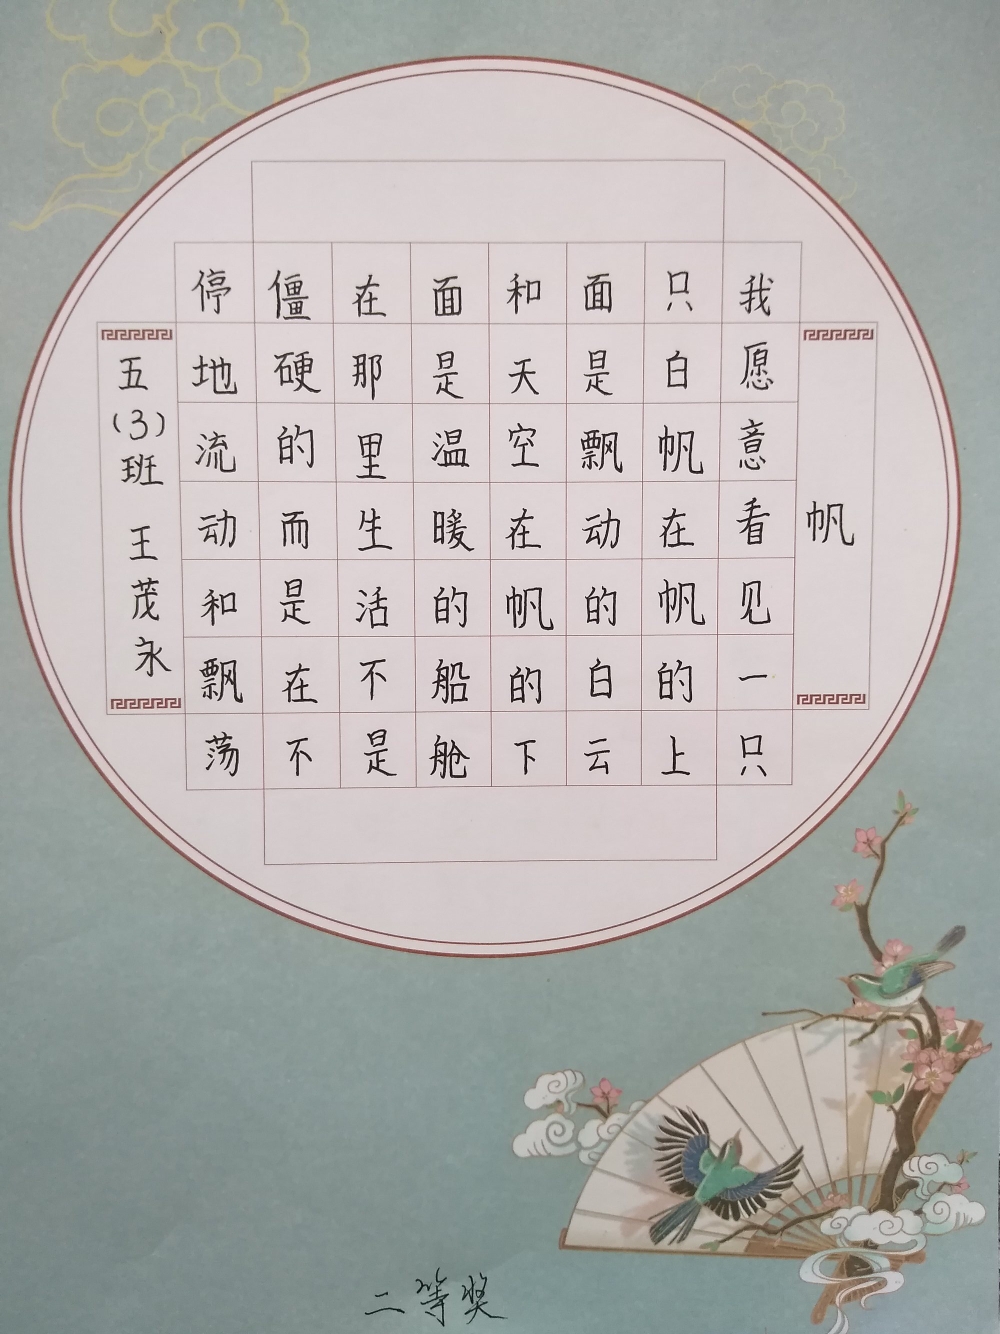 帆
我愿意看见一只
只白帆在帆的上
面是飘动的白云
和天空在帆的下
面是温暖的船舱
在那里生活不是
僵硬的而是在不
停地流动和飘荡
五(3)班 王茂永
二等奖